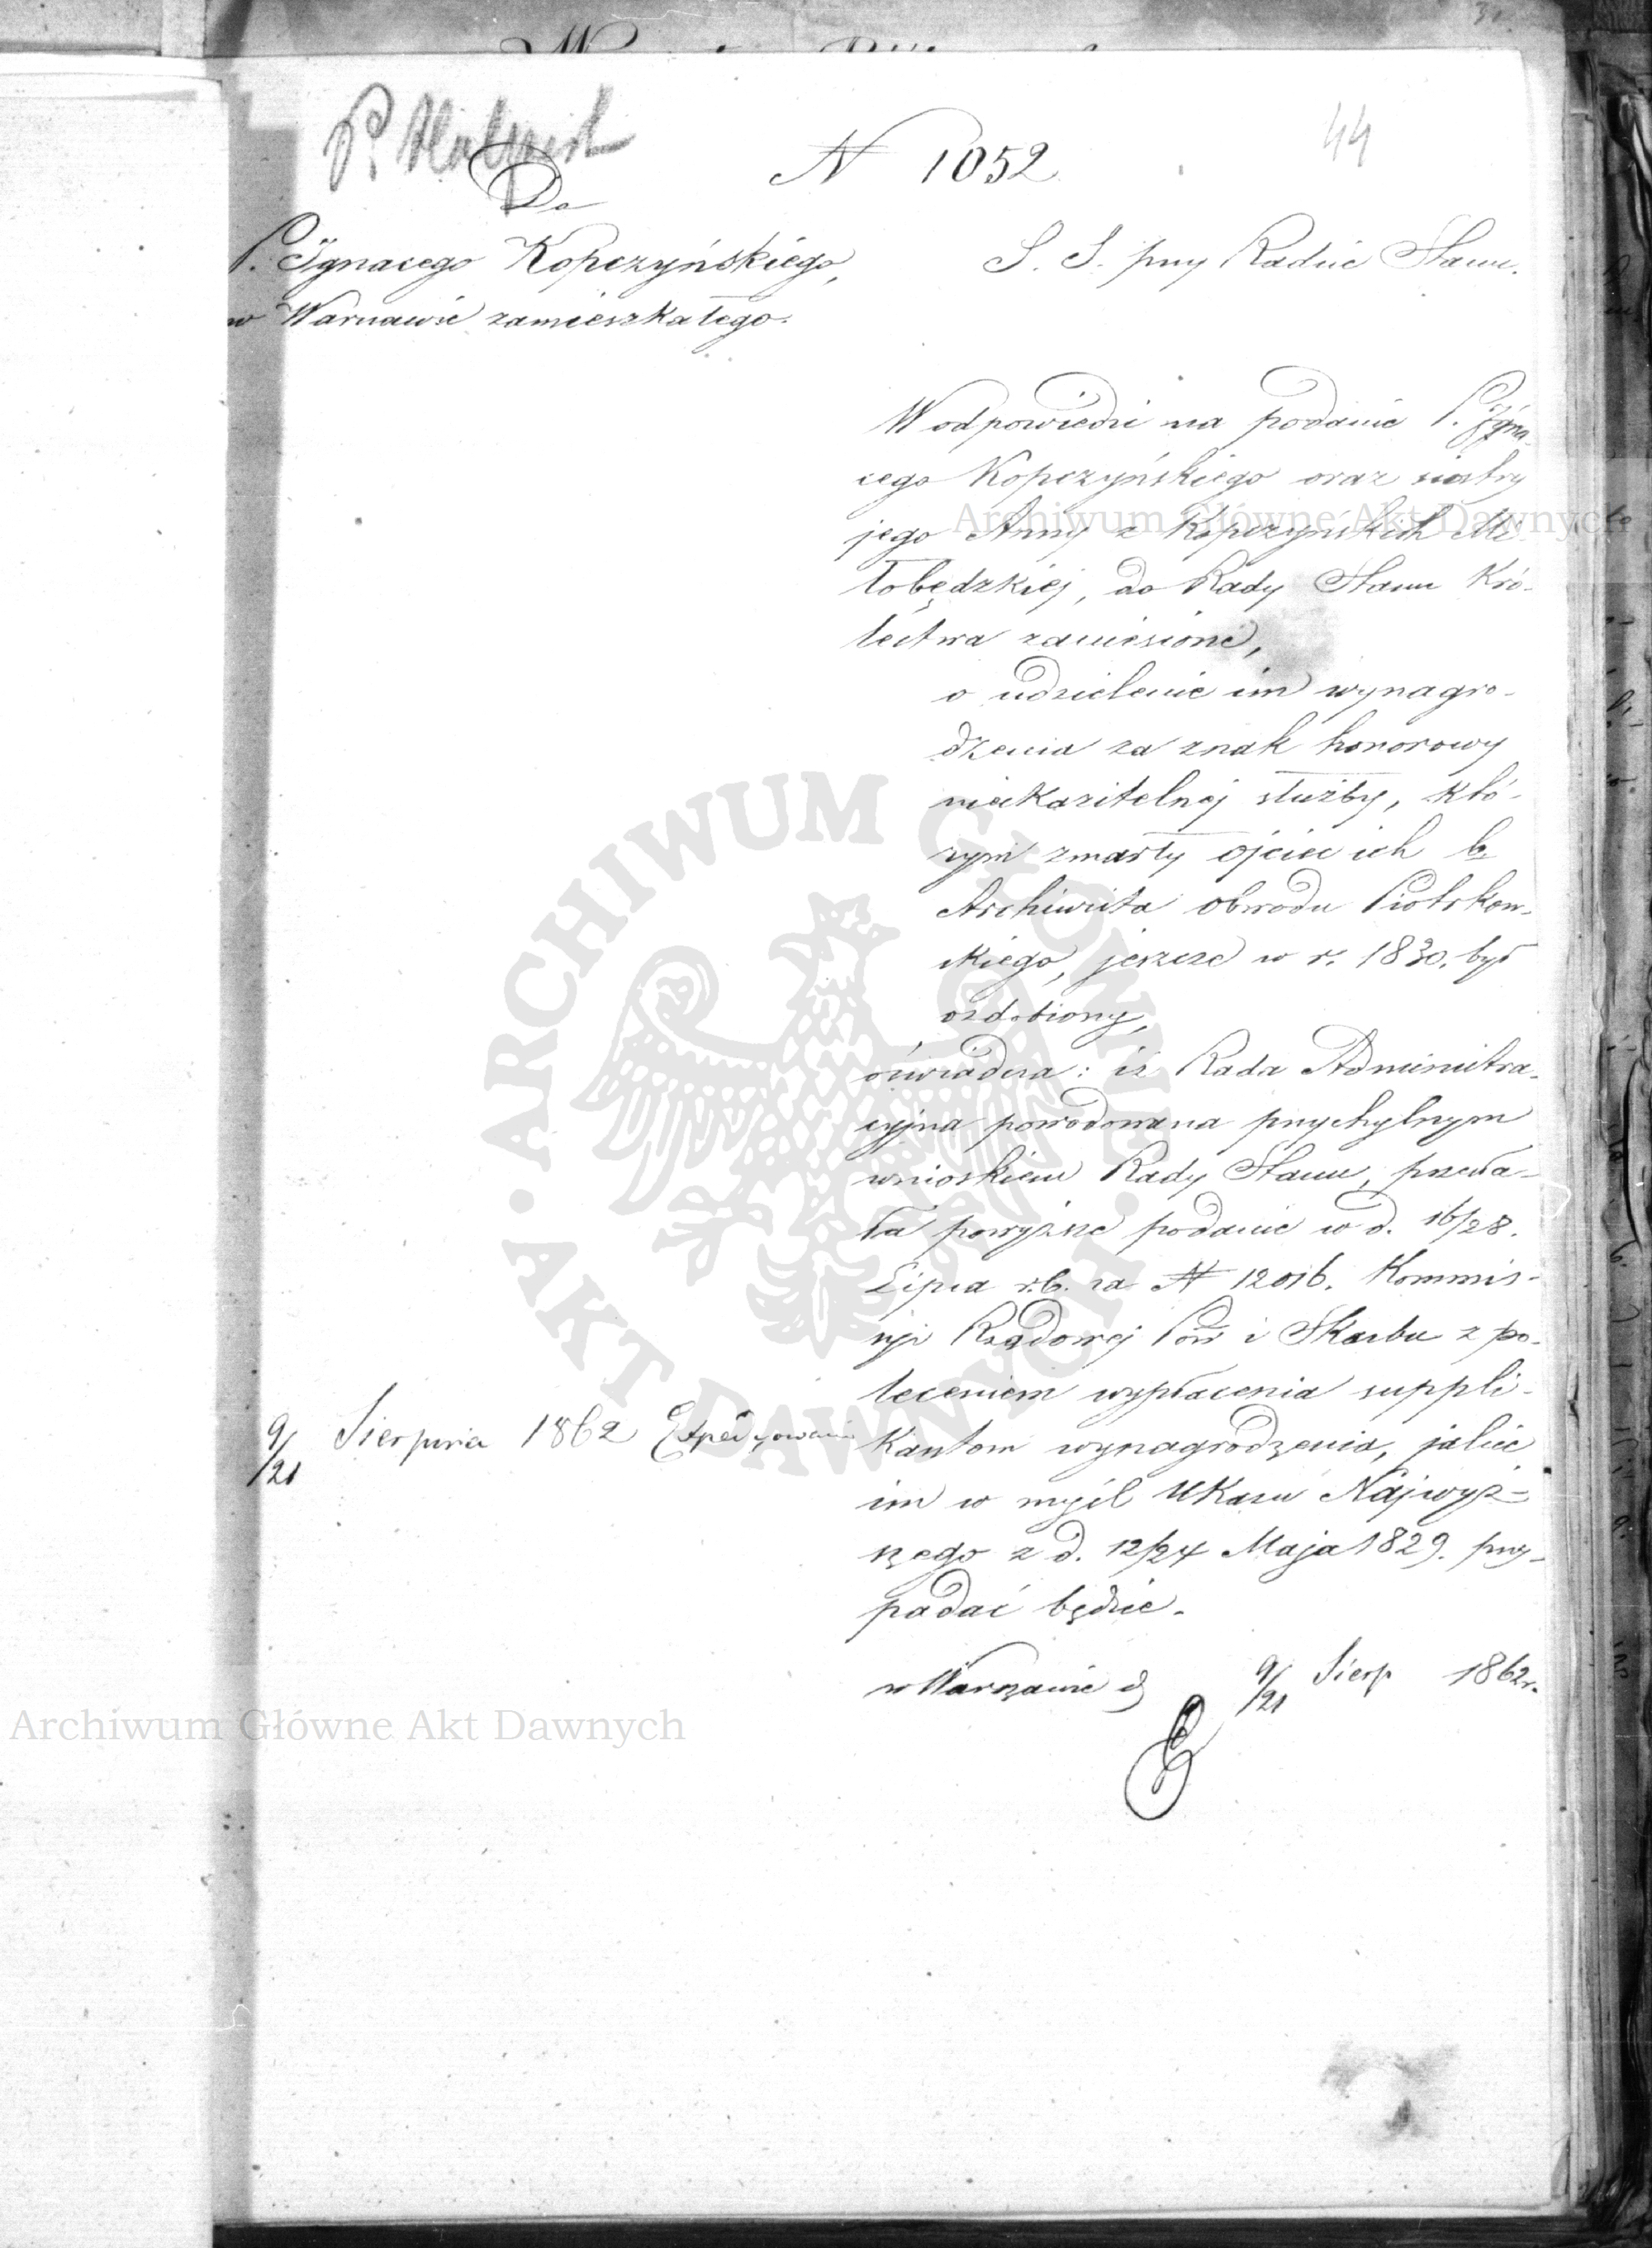 44
P. 
N 1052
Do
P. Ignacego Kopczyńskiego,
w Warszawie zamieszkałego.
S. S. przy Radzie Stanu.
W odpowiedzi na podanie P. Igna-
cego Kopczyńskiego oraz siostry
jego Anny z Kopczyńskich Mi
łobędzkiej, do Rady Stanu Kró-
lestwa zaniesione,
o udzielenie im wynagro-
dzenia za znak honorowy
nieskazitelnej służby, któ-
rym zmarły ojciec ich b.
Archiwista obwodu Piotrkow-
skiego, jeszcze w r. 1830. był
ozdobiony,
oświadcza: iż Rada Administra-
cyjna powodowana przychylnym
wnioskiem Rady Stanu, przesła-
ła powyższe podanie w d. 16/28.
Lipca r.b. za N 12016. Kommis-
syi Rządowej Przy i Skarbu z po-
leceniem wypłacenia suppli-
kantom wynagrodzenia, jakie
im w myśl Ukazu Najwyż-
szego z d. 12/24 Maja 1829. przy-
padać będzie.
9/21 Sierpnia 1862 Expedyowano
w Warszawie d 9/21 Sierp 1862r.
Archiwum Główne Akt Dawnych
Archiwum Główne Akt Dawnych
ARCHIWUM GŁÓWNE AKT DAWNYCH